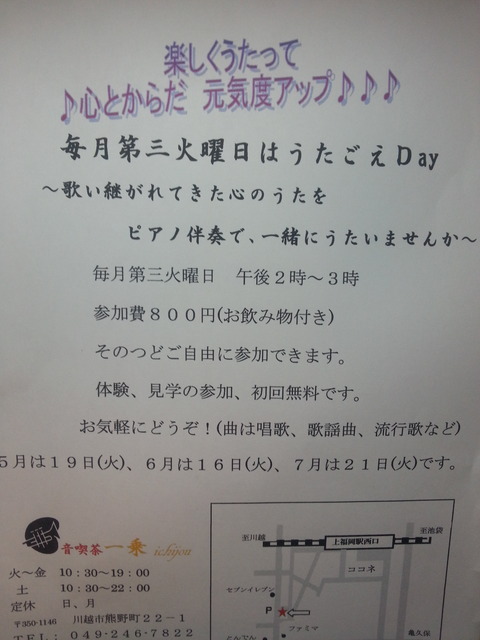 楽しくうたって
♪心とからだ 元気度アップ♪♪♪
毎月第三火曜日はうたごえDay
～歌い継がれてきた心のうたを
ピアノ伴奏で、一緒にうたいませんか～
毎月第三火曜日 午後２時～３時
参加費８００円(お飲み物付き)
そのつどご自由に参加できます。
体験、見学の参加、初回無料です。
お気軽にどうぞ！(曲は唱歌、歌謡曲、流行歌など)
５月は１９日(火)、６月は１６日(火)、７月は２１日(火)です。
音喫茶 一乗 ichijou
火～金 10：30～19：00
土 10：30～22：00
定休 日、月
〒350-1146 川越市熊野町２２－１
ＴＥＬ： 049-246-7822
至川越 上福岡駅西口 至池袋
ココネ
セブンイレブン
P
ファミマ
亀久保